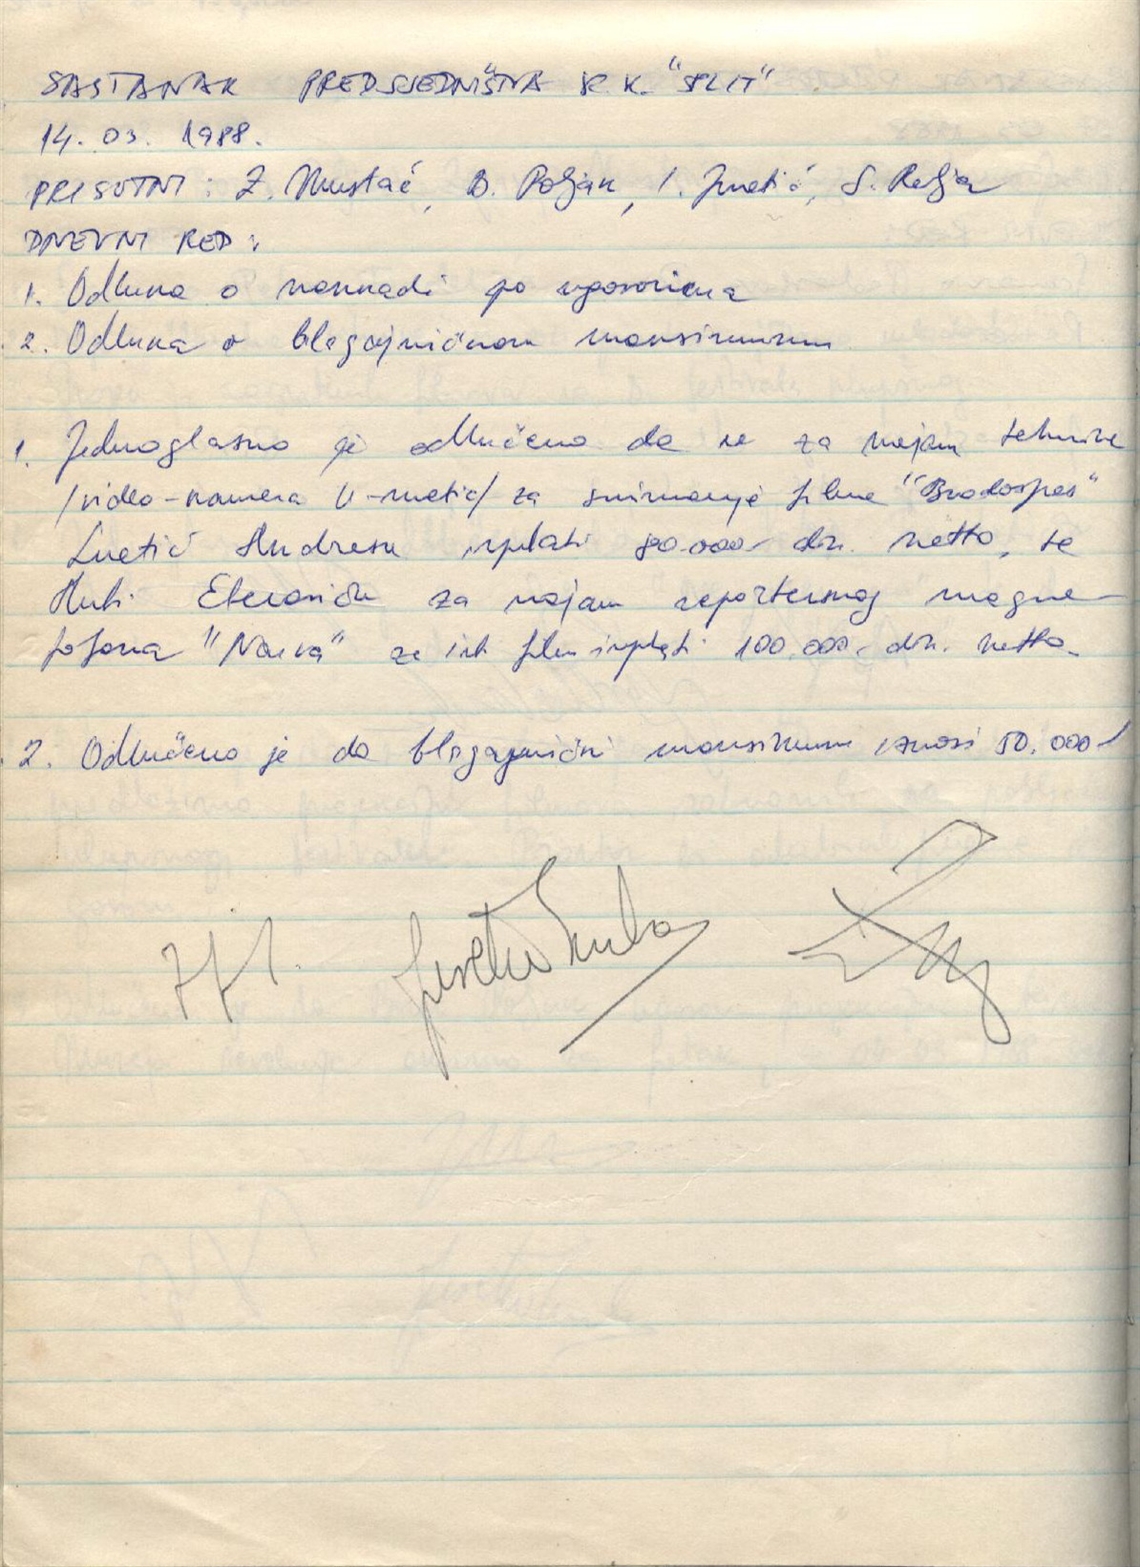 SASTANAK PREDSJEDNIŠTVA K.K. "SPLIT"
14. 03. 1988.
PRISUTNI: Z. Mustać, B. Poljak, I. Juretić, S. Relja
DNEVNI RED:
1. Odluka o naknadi po ugovorima
2. Odluka o blagajničkom maksimumu
1. Jednoglasno je odlučeno da se za najam tehnike
/video-kamera U-matic/ za snimanje filma "Brodospas"
Luetić Andresu isplati 80.000- din. netto, te
Anti Eterović za najam reporternog magne-
tofona "Nagra" za isti film isplati 100.000.- din. netto.
2. Odlučeno je da blagajnički maksimum iznosi 50.000